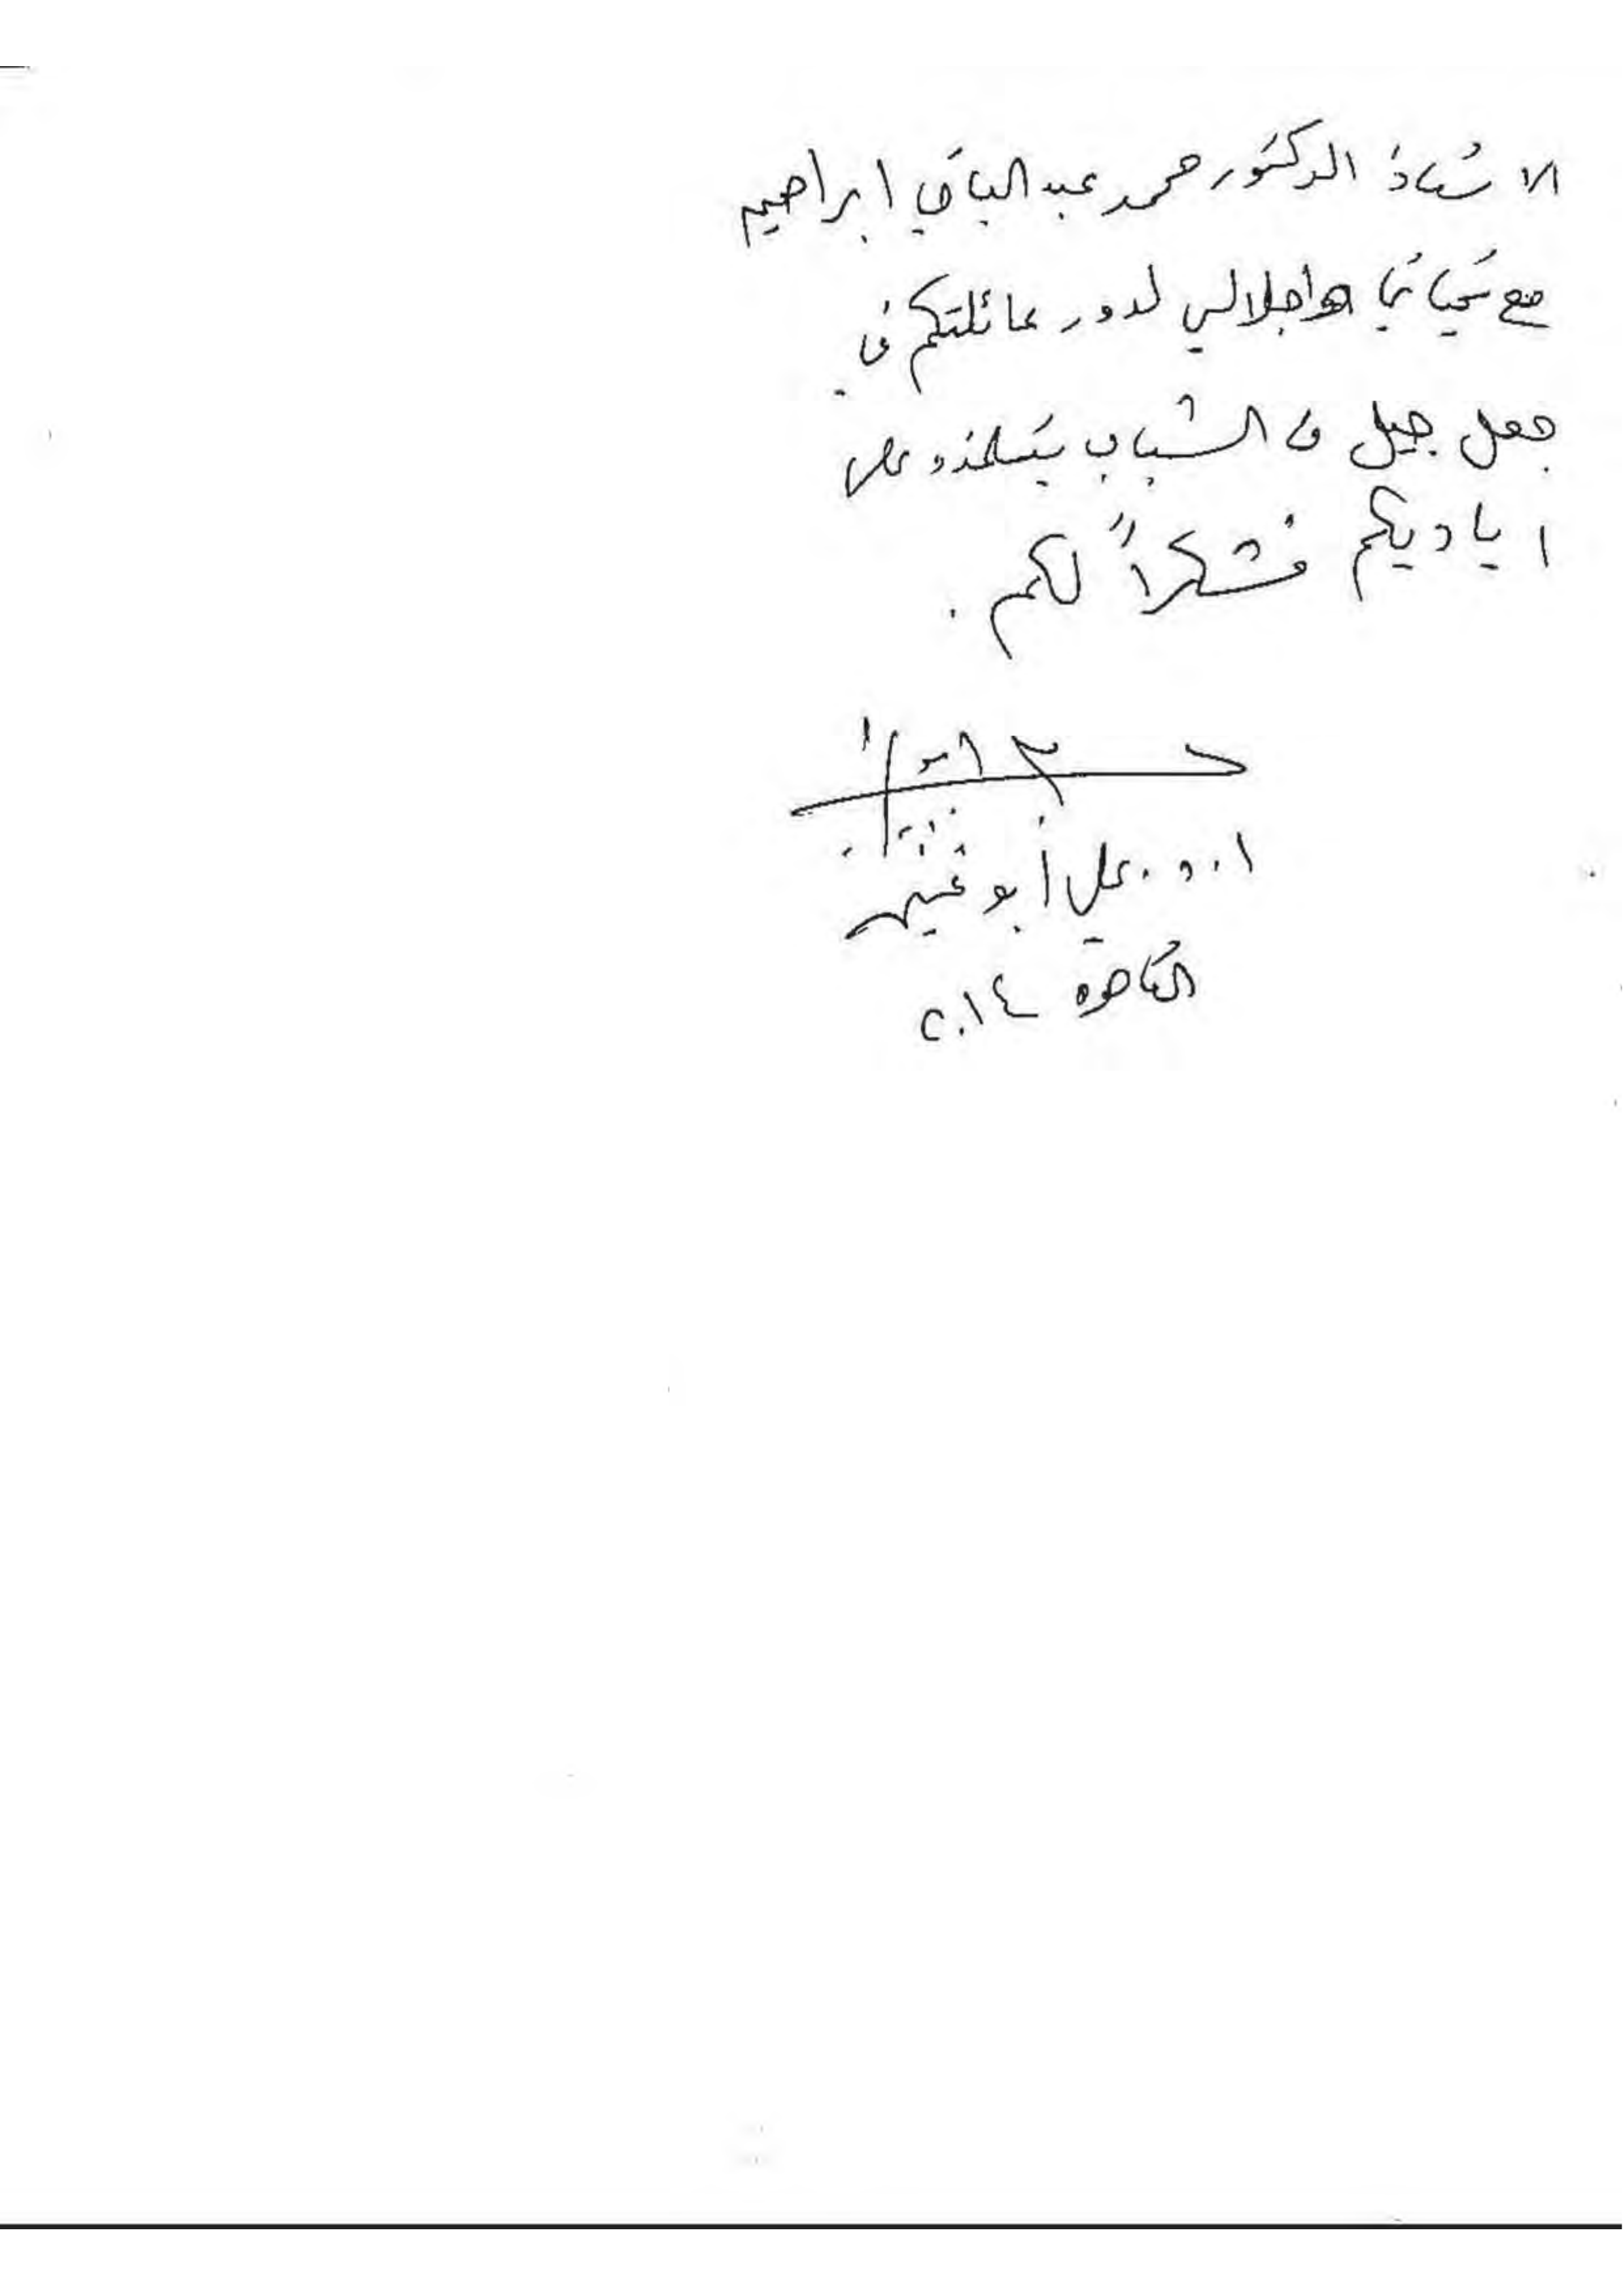 الاستاذ الدكتور محمد عبد الباقي ابراهيم
مع تحياتي واجلالي لدور عائلتكم في
جعل جيل من الشباب يتتلمذو على
اياديكم فشكراً لكم .
ا . د . علي أبو غنيمة
القاهرة ٢٠١٤